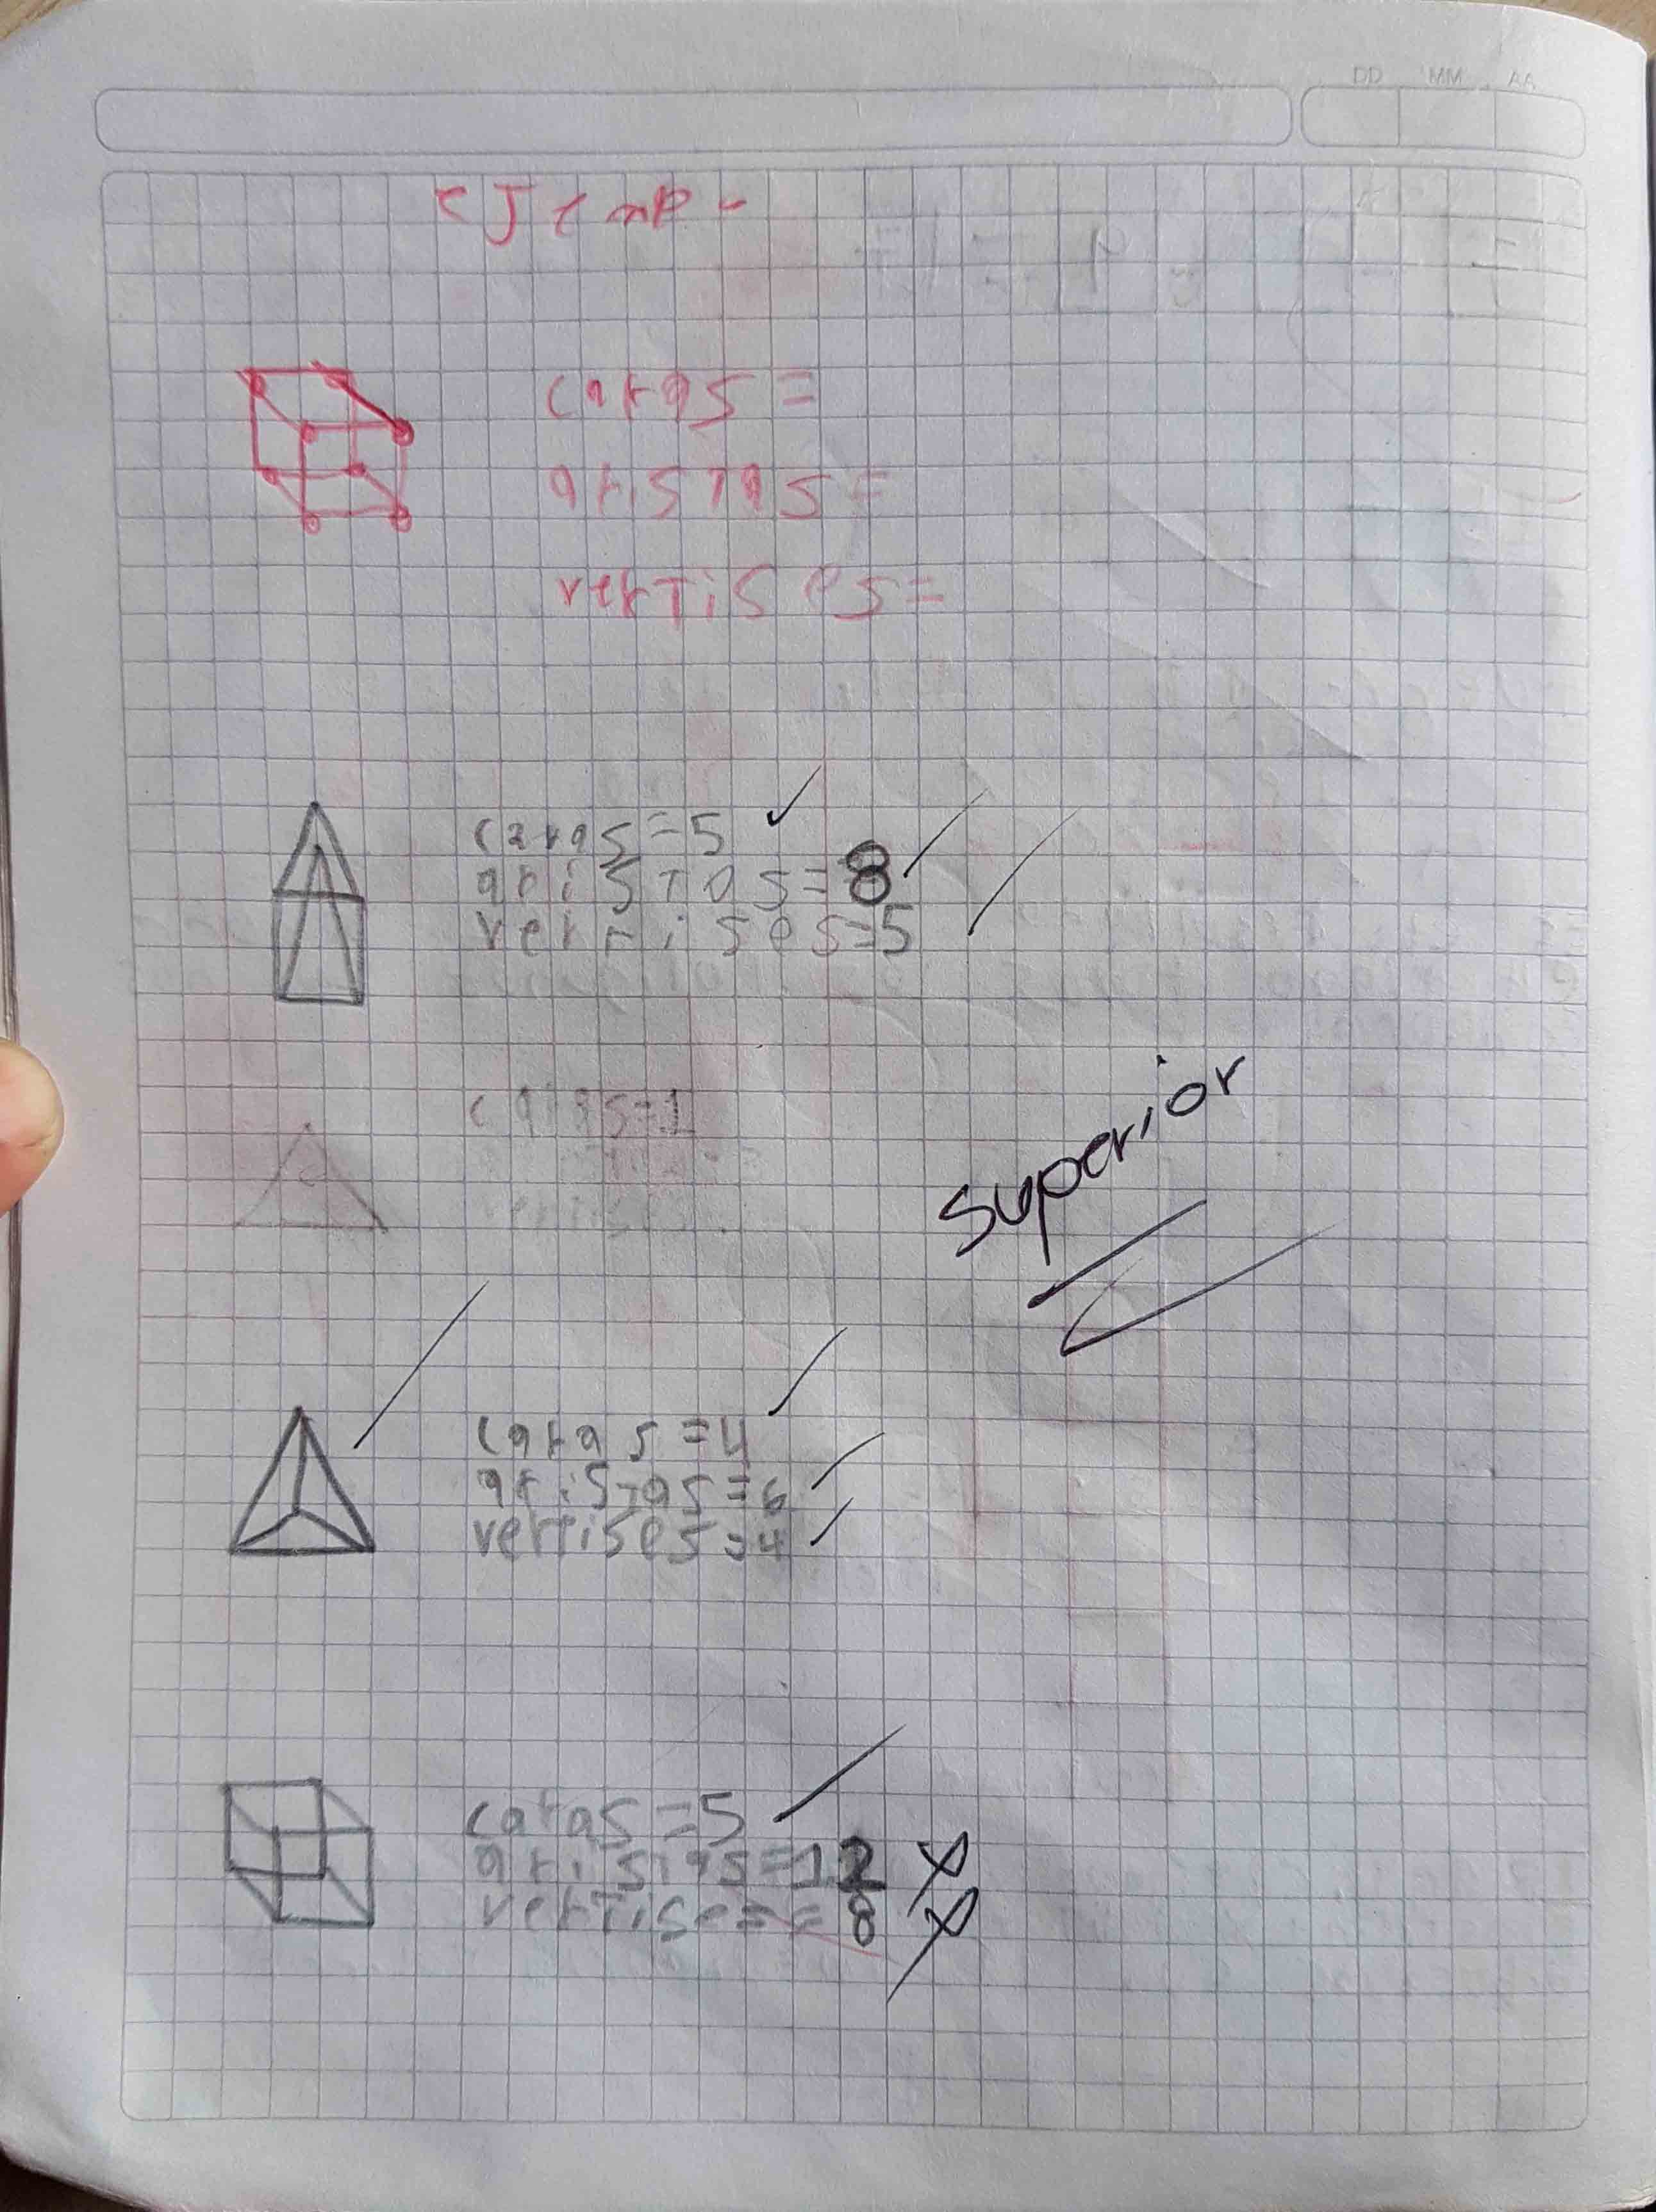 DD MM AA
ejemp
caras =
aristas =
vertises =
caras = 5
aristas = 8
vertises = 5
caras = 1
vertises
superior
caras = 4
aristas = 6
vertises = 4
caras = 5
aristas = 12
vertises = 8